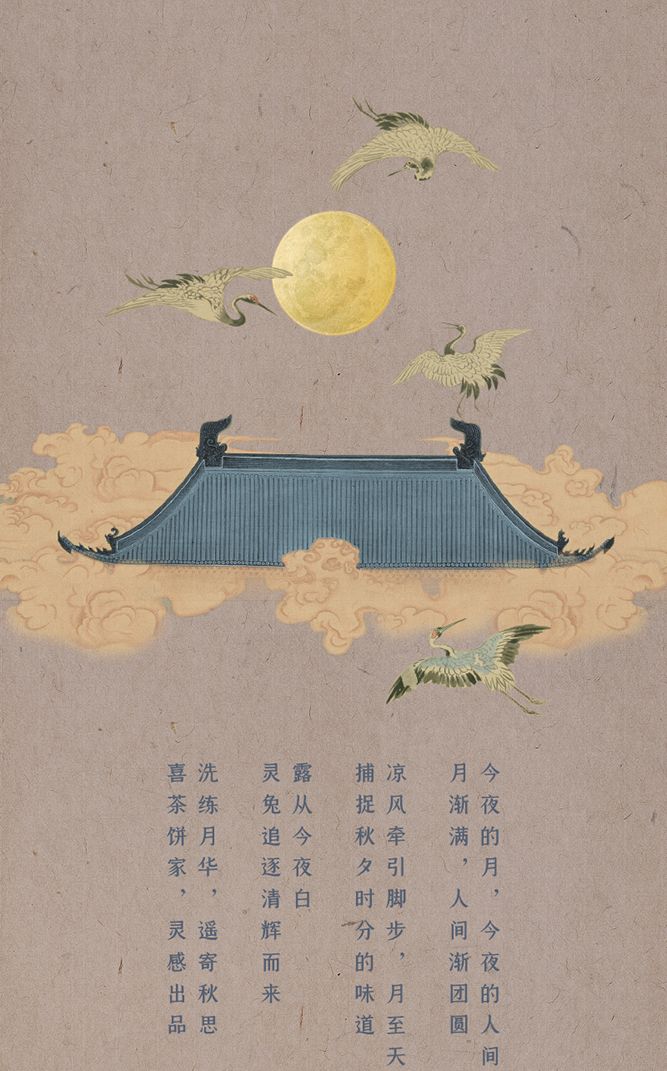 今夜的月，今夜的人间
月渐满，人间渐团圆
凉风牵引脚步，月至天
捕捉秋夕时分的味道
露从今夜白
灵兔追逐清辉而来
洗练月华，遥寄秋思
喜茶饼家，灵感出品